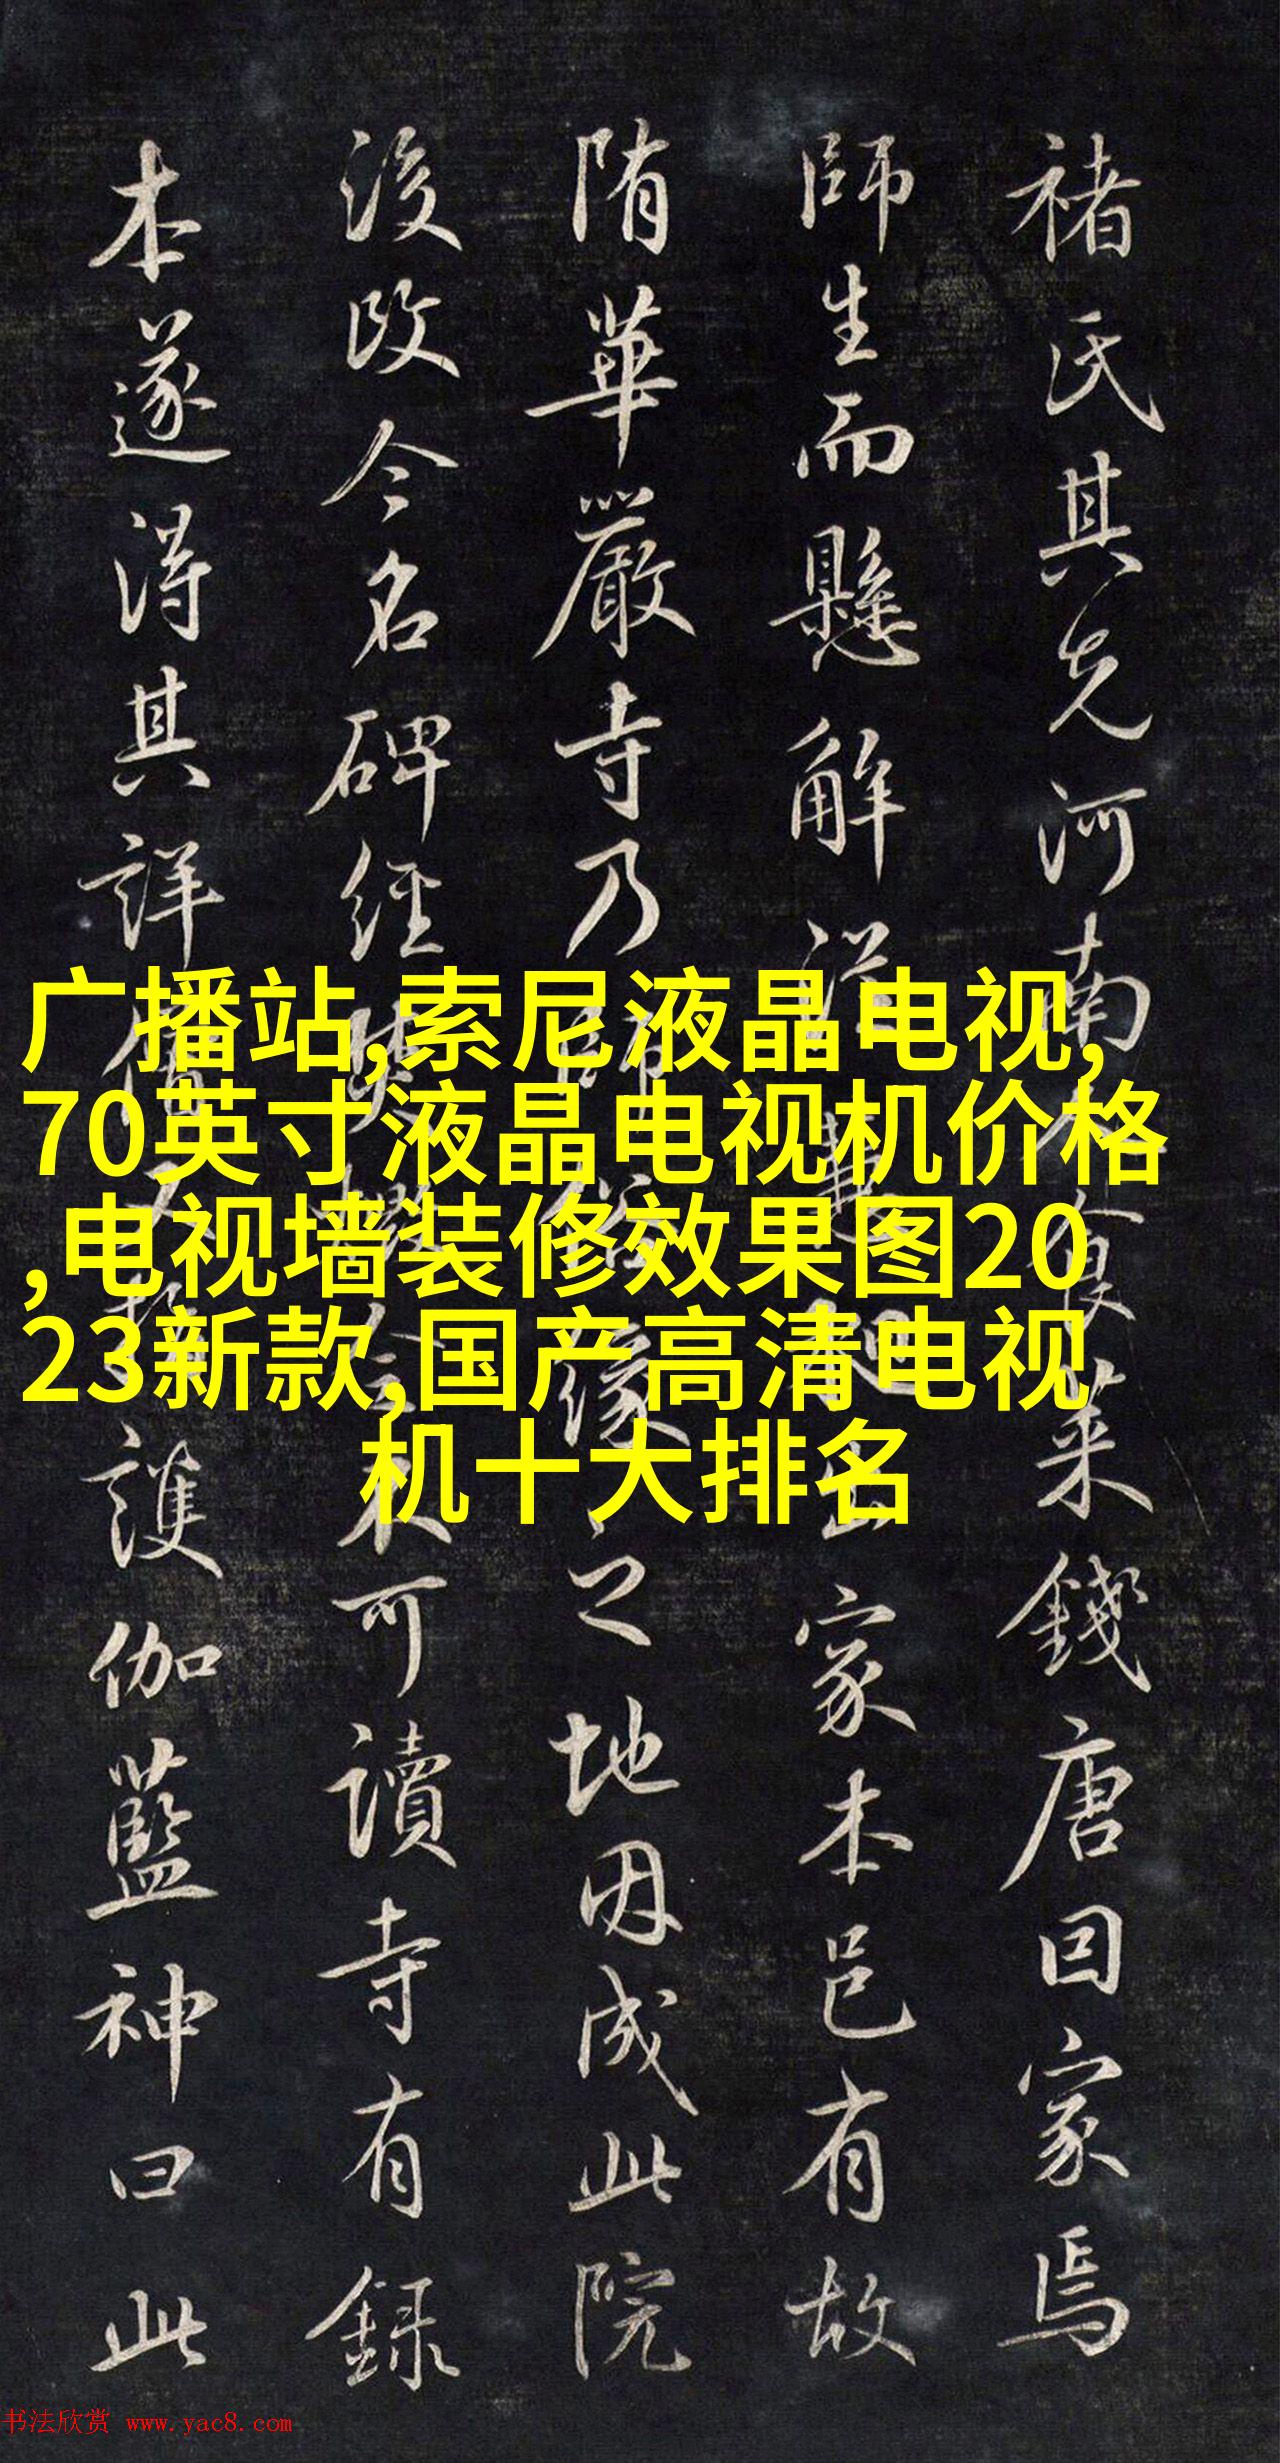 褚氏其先河南人後菜錢唐因家焉
師生而懸解從事超山家本邑有故
隋華嚴寺乃師俗緣之地因成此院
後改今名碑經
本遂得其詳
不可讀寺有録
護伽藍神曰此
广播站,索尼液晶电视,
70英寸液晶电视机价格
,电视墙装修效果图20
23新款,国产高清电视
机十大排名
书法欣赏 www.yac8.com